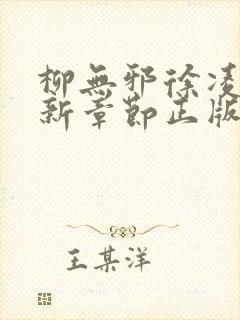 柳無邪徐凌
新章節正版
王某洋